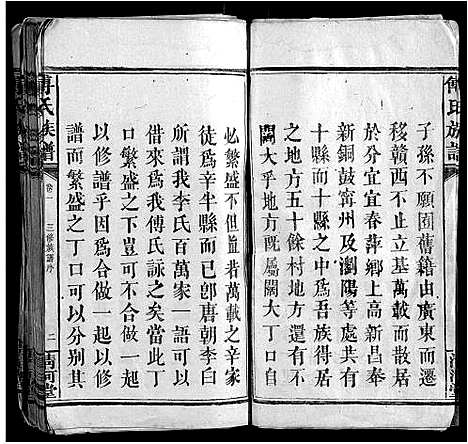 傅氏族譜
子孫不願囿舊籍由廣東而遷
移贛西不止立基萬載而散居
於分宜宜春萍鄉上高新昌奉
新銅鼓甯州及瀏陽等處共有
十縣而十縣之中爲吾族得居
之地方五十餘村地方還有不
闊大乎地方既屬闊大丁口自
必繁盛不但蓋若萬載之辛家
徒爲辛半縣而已卽唐朝李白
所謂我李氏百萬家一語可以
借來爲我傅氏詠之矣當此丁
口繁盛之時可不作一修譜以
以修譜乎且作一起一修以修
譜而繁盛之丁口可以分別其
傅氏族譜
卷一
三修族譜序
二
清河堂